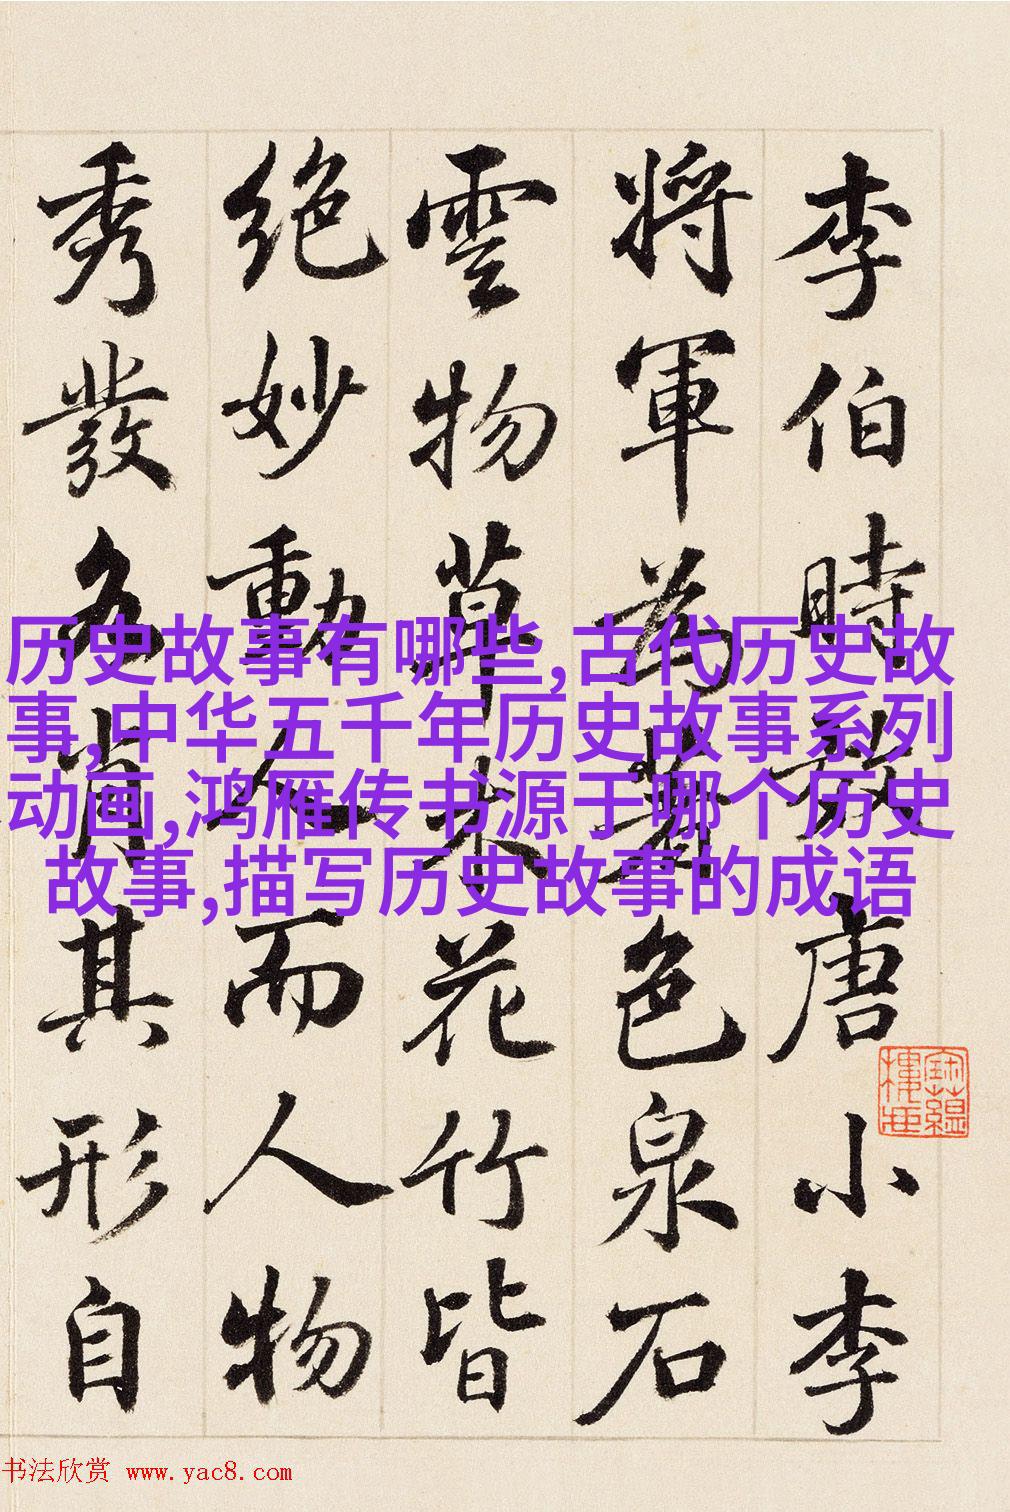 李伯時效唐小李
將軍為著色泉石
雲物草木花竹皆
絕妙動人而人物
秀發各肖其形自
历史故事有哪些,古代历史故
事,中华五千年历史故事系列
动画,鸿雁传书源于哪个历史
故事,描写历史故事的成语
书法欣赏 www.yac8.com